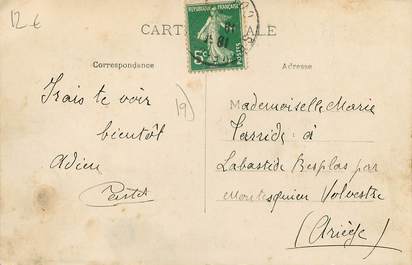 12 €
CARTE POSTALE
RÉPUBLIQUE FRANÇAISE
5c
POSTES
Correspondance
Adresse
Irais te voir
bientôt
adieu
19)
Mademoiselle Marie
à
Labastide Besplas par
Montesquieu Volvestre
(Ariège)